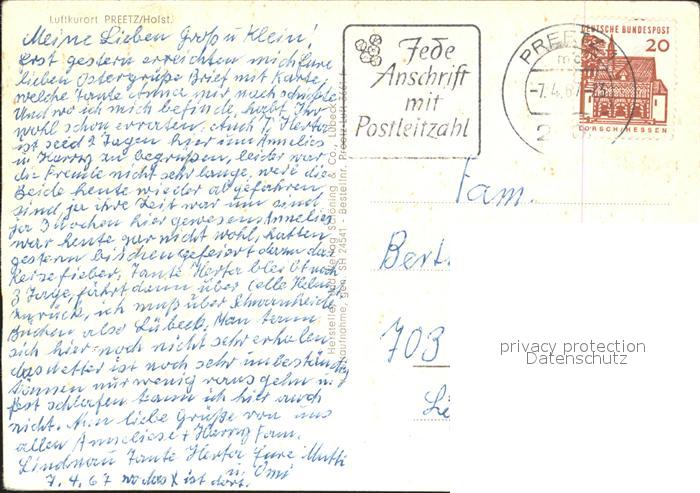 Luftkurort PREETZ/Holst.
Meine Lieben Groß u Klein!
erst gestern erreichten mich Eure
lieben Ostergrüße Brief mit Karte,
welche Tante Anna mir nach schickte
Und wo ich mich befinde, habt Ihr
wohl schon erraten. Auch T. Herta
ist seid 2 Tagen hier um Annelies
u Harry zu begrüßen, leider war
die Freude nicht sehr lange, weil die
Beide heute wieder abgefahren
sind ja ihre Zeit war um sind
ja 3 Wochen hier gewesen. Annelies
war heute gar nicht wohl, hatten
gestern bischen gefeiert dann das
Reisefieber. Tante Herta bleibt noch
3 Tage, fährt dann über Celle
zurück, ich muß über Schwarzenbek
Büchen also Lübeck. Man kann
sich hier noch nicht sehr erholen
das Wetter ist noch sehr unbeständig
können nur wenig rausgehn u.
fest schlafen kann ich hier auch
nicht. Nun liebe Grüße von uns
allen Anneliese + Harry Fam.
Lindnau Tante Herta Eure Mutti
u. Omi
7. 4. 67 wo das X ist dort.
Jede
Anschrift
mit
Postleitzahl
PREETZ
-7.4.67
2
DEUTSCHE BUNDESPOST
20
LORSCH/HESSEN
Fam.
Bert.
703
privacy protection
Datenschutz